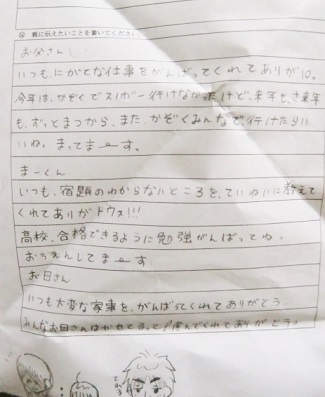 ⑭ 親に伝えたいことを書いてください。
お父さん
いつも、にがてな仕事をがんばってくれてありが10。
今年は、かぞくでスノボー行けなかったけど、来年も、さ来年
も、ずっとまつから、また、かぞくみんなで、行けたらい
いね。まってまーす。
まーくん
いつも、宿題のわからないところを、ていねいに教えて
くれてありがトウス!!!
高校、合格できるように勉強がんばってね。
おうえんしてまーす。
お母さん
いつも大変な家事を、がんばってくれてありがとう。
みんなお母さんにまかせてまって!産んでくれてありがとう。